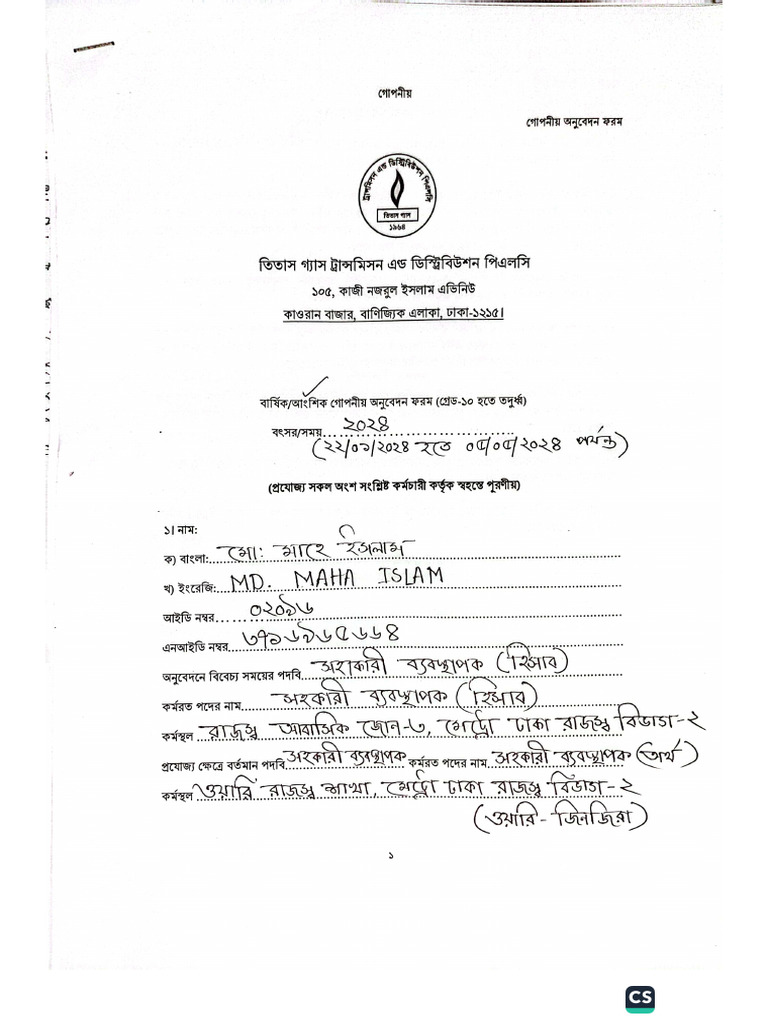 গোপনীয়
গোপনীয় অনুবেদন ফরম
ট্রান্সমিসন এন্ড ডিস্ট্রিবিউশন পিএলসি
তিতাস গ্যাস
১৯৬৪
তিতাস গ্যাস ট্রান্সমিসন এন্ড ডিস্ট্রিবিউশন পিএলসি
১০৫, কাজী নজরুল ইসলাম এভিনিউ
কাওরান বাজার, বাণিজ্যিক এলাকা, ঢাকা-১২১৫।
বার্ষিক/আংশিক গোপনীয় অনুবেদন ফরম (গ্রেড-১০ হতে তদুর্ধ্ব)
বৎসর/সময় ২০২৪
(২২/০১/২০২৪ হতে ০৫/০৫/২০২৪ পর্যন্ত)
(প্রযোজ্য সকল অংশ সংশ্লিষ্ট কর্মচারী কর্তৃক স্বহস্তে পূরণীয়)
১। নাম:
ক) বাংলা: মো: মাহে ইসলাম
খ) ইংরেজি: MD. MAHA ISLAM
আইডি নম্বর ০২০৯৬
এনআইডি নম্বর ৩৭১৬৯৬৫৬৬৪
অনুবেদনে বিবেচ্য সময়ের পদবি সহকারী ব্যবস্থাপক (হিসাব)
কর্মরত পদের নাম সহকারী ব্যবস্থাপক (হিসাব)
কর্মস্থল রাজস্ব আবাসিক জোন-৩, মেট্রো ঢাকা রাজস্ব বিভাগ-২
প্রযোজ্য ক্ষেত্রে বর্তমান পদবি সহকারী ব্যবস্থাপক কর্মরত পদের নাম সহকারী ব্যবস্থাপক (অর্থ)
কর্মস্থল ওয়ারি রাজস্ব শাখা, মেট্রো ঢাকা রাজস্ব বিভাগ-২
(ওয়ারি - জিনজিরা)
১
CS